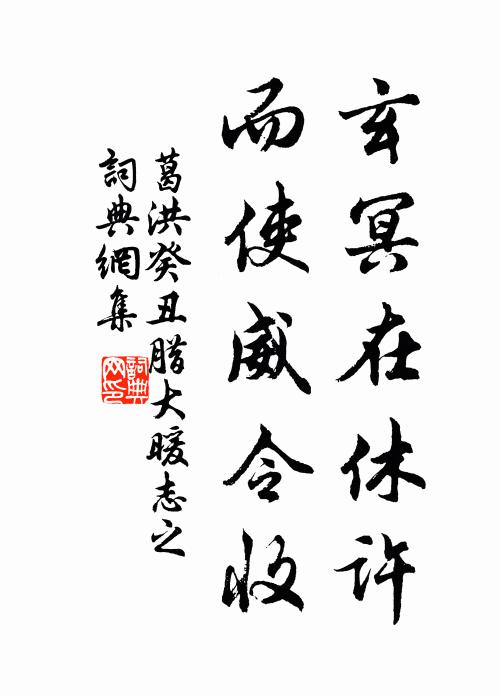 玄冥在休許
而使威令收
葛洪癸丑腊大暖志之
詞典網集
詞典網印